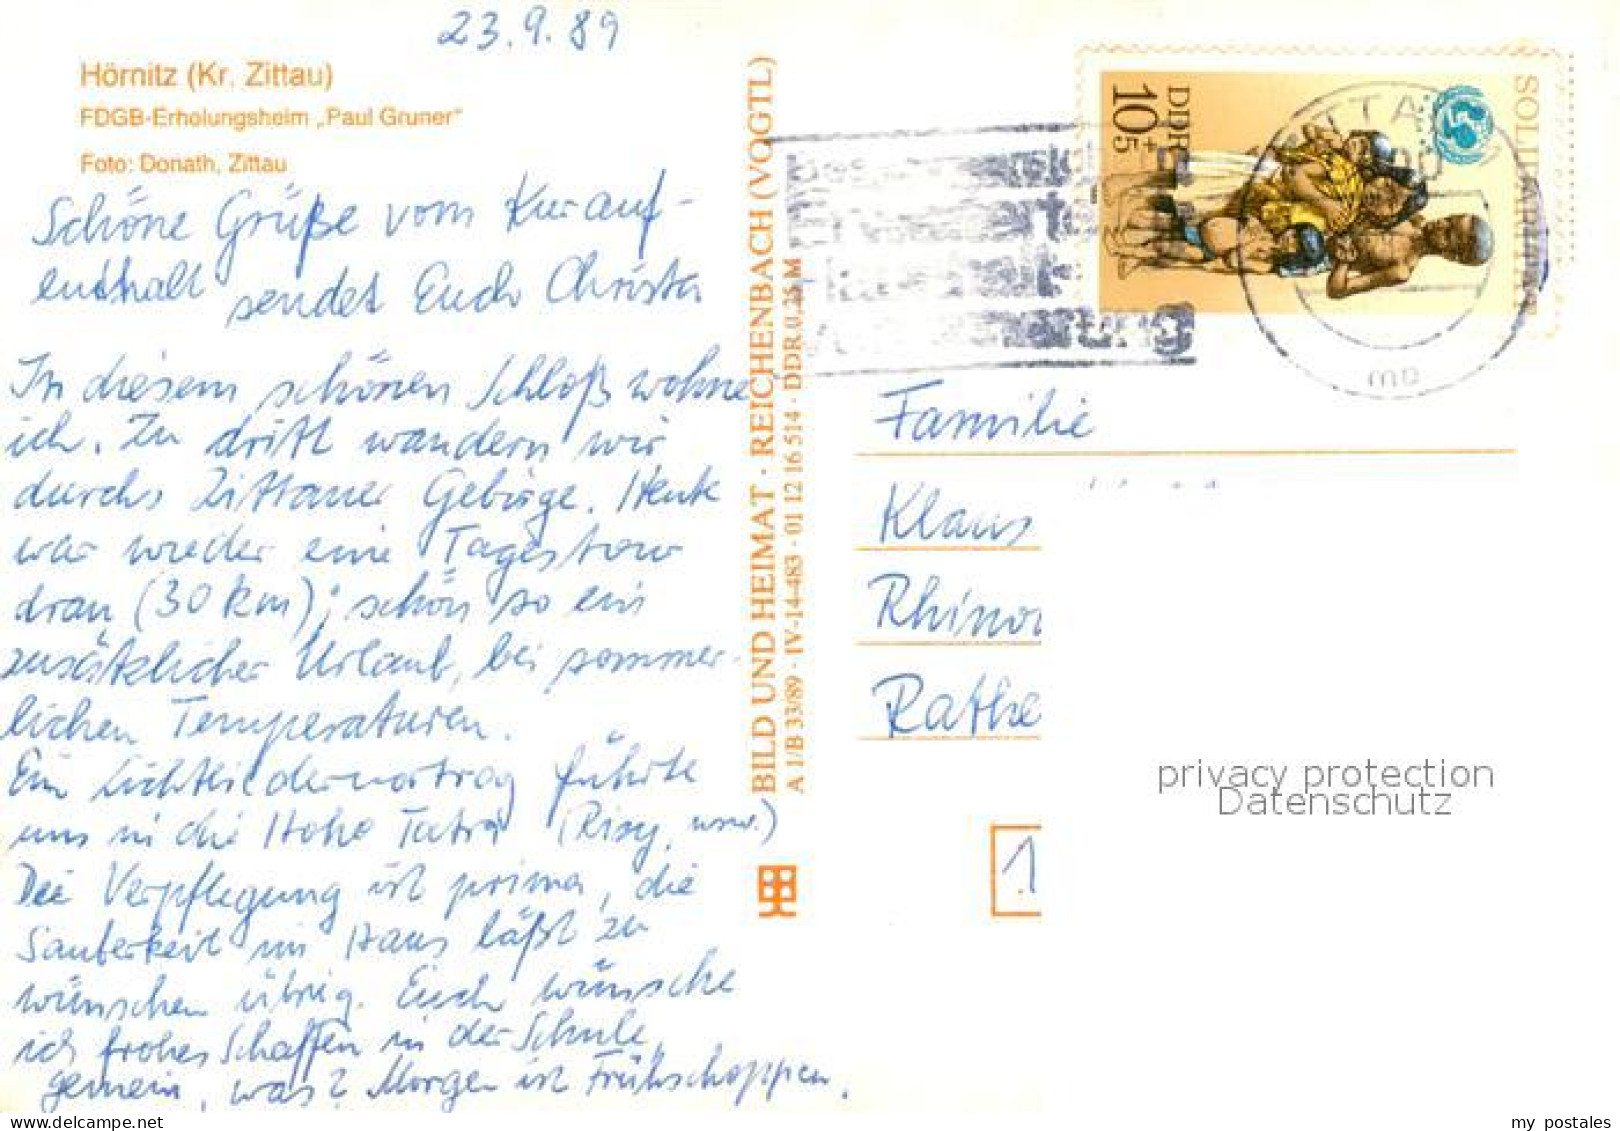 23.9.89
Hörnitz (Kr. Zittau)
FDGB-Erholungsheim „Paul Gruner"
Foto: Donath, Zittau
Schöne Grüße vom Kurauf-
enthalt sendet Euch Christa
In diesem schönen Schloß wohne
ich. Zu dritt wandern wir
durchs Zittauer Gebirge. Heute
war wieder eine Tagestour
dran (30 km); schön so ein
zusätzlicher Urlaub, bei sommer-
lichen Temperaturen.
Ein Lichtbildervortrag führte
uns in die Hohe Tatra (Risy, usw.)
Die Verpflegung ist prima, die
Sauberkeit im Haus läßt zu
wünschen übrig. Euch wünsche
ich frohes Schaffen in der Schule,
gemein, was? Morgen ist Frühschoppen.
BILD UND HEIMAT · REICHENBACH (VOGTL)
A 1/B 33/89 · IV-14-483 · 01 12 16 514 · DDR 0,25 M
SOLIDARITÄT
DDR
10+5
ZITTAU
mo
Familie
Klaus
Rhinow
Rathe
1
privacy protection
Datenschutz
my postales